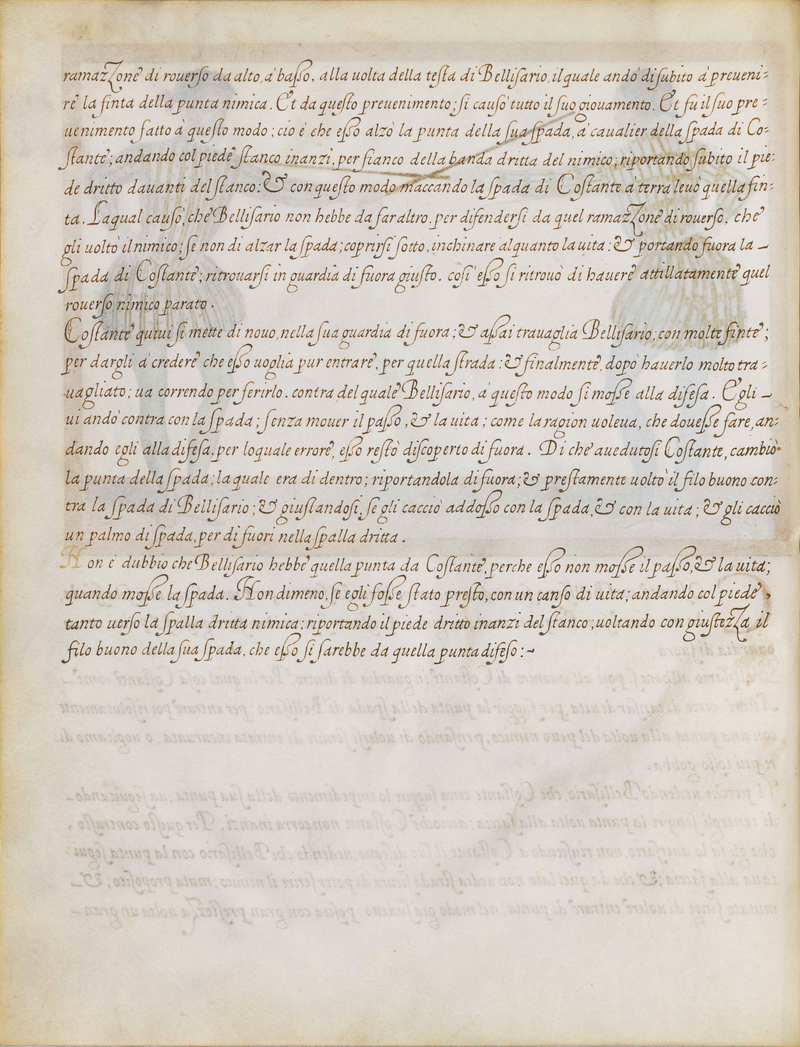 ramazzone di rouerso da alto, à basso, alla uolta della testa di Bellisario, il quale andò di subito à preueni-
re la finta della punta nimica. Et da questo preuenimento; si causò tutto il suo giouamento. Et fù il suo pre-
uenimento fatto à questo modo; cio è che esso alzò la punta della sua spada, à caualier della spada di Co-
stante; andando col piede stanco inanzi, per fianco della banda dritta del nimico; riportando subito il pie-
de dritto dauanti del stanco: & con questo modo maccando la spada di Costante à terra leuò quella fin-
ta. La qual causò, che Bellisario non hebbe da far altro, per difendersi da quel ramazzone di rouerso, che
gli uoltò il nimico; se non di alzar la spada; coprirsi sotto, inchinare alquanto la uita: & portando fuora la -
spada di Costante; ritrouarsi in guardia di fuora giusto. così esso si ritrouò di hauere attillatamente quel
rouerso nimico parato.
Costante quiui si mette di nouo, nella sua guardia di fuora; & assai trauaglia Bellisario, con molte finte;
per dargli à credere che esso uoglia pur entrare, per quella strada: & finalmente, dopò hauerlo molto tra-
uagliato; ua correndo per ferirlo. contra del quale Bellisario, à questo modo si mosse alla difesa. Egli -
ui andò contra con la spada; senza mouer il passo, & la uita; come la ragion uoleua, che douesse fare, an-
dando egli alla difesa, per lo quale errore, esso restò discoperto di fuora. Di che auedutosi Costante, cambiò
la punta della spada; la quale era di dentro; riportandola di fuora; & prestamente uoltò il filo buono con-
tra la spada di Bellisario; & giustandosi, se gli cacciò addosso con la spada, & con la uita; & gli cacciò
un palmo di spada, per di fuori nella spalla dritta.
Non è dubbio che Bellisario hebbe quella punta da Costante, perche esso non mosse il passo, & la uita;
quando mosse la spada. Nondimeno, se egli fosse stato presto, con un canso di uita; andando col piede,
tanto uerso la spalla dritta nimica; riportando il piede dritto inanzi del stanco; uoltando con giustezza il
filo buono della sua spada, che esso si sarebbe da quella punta difeso:~